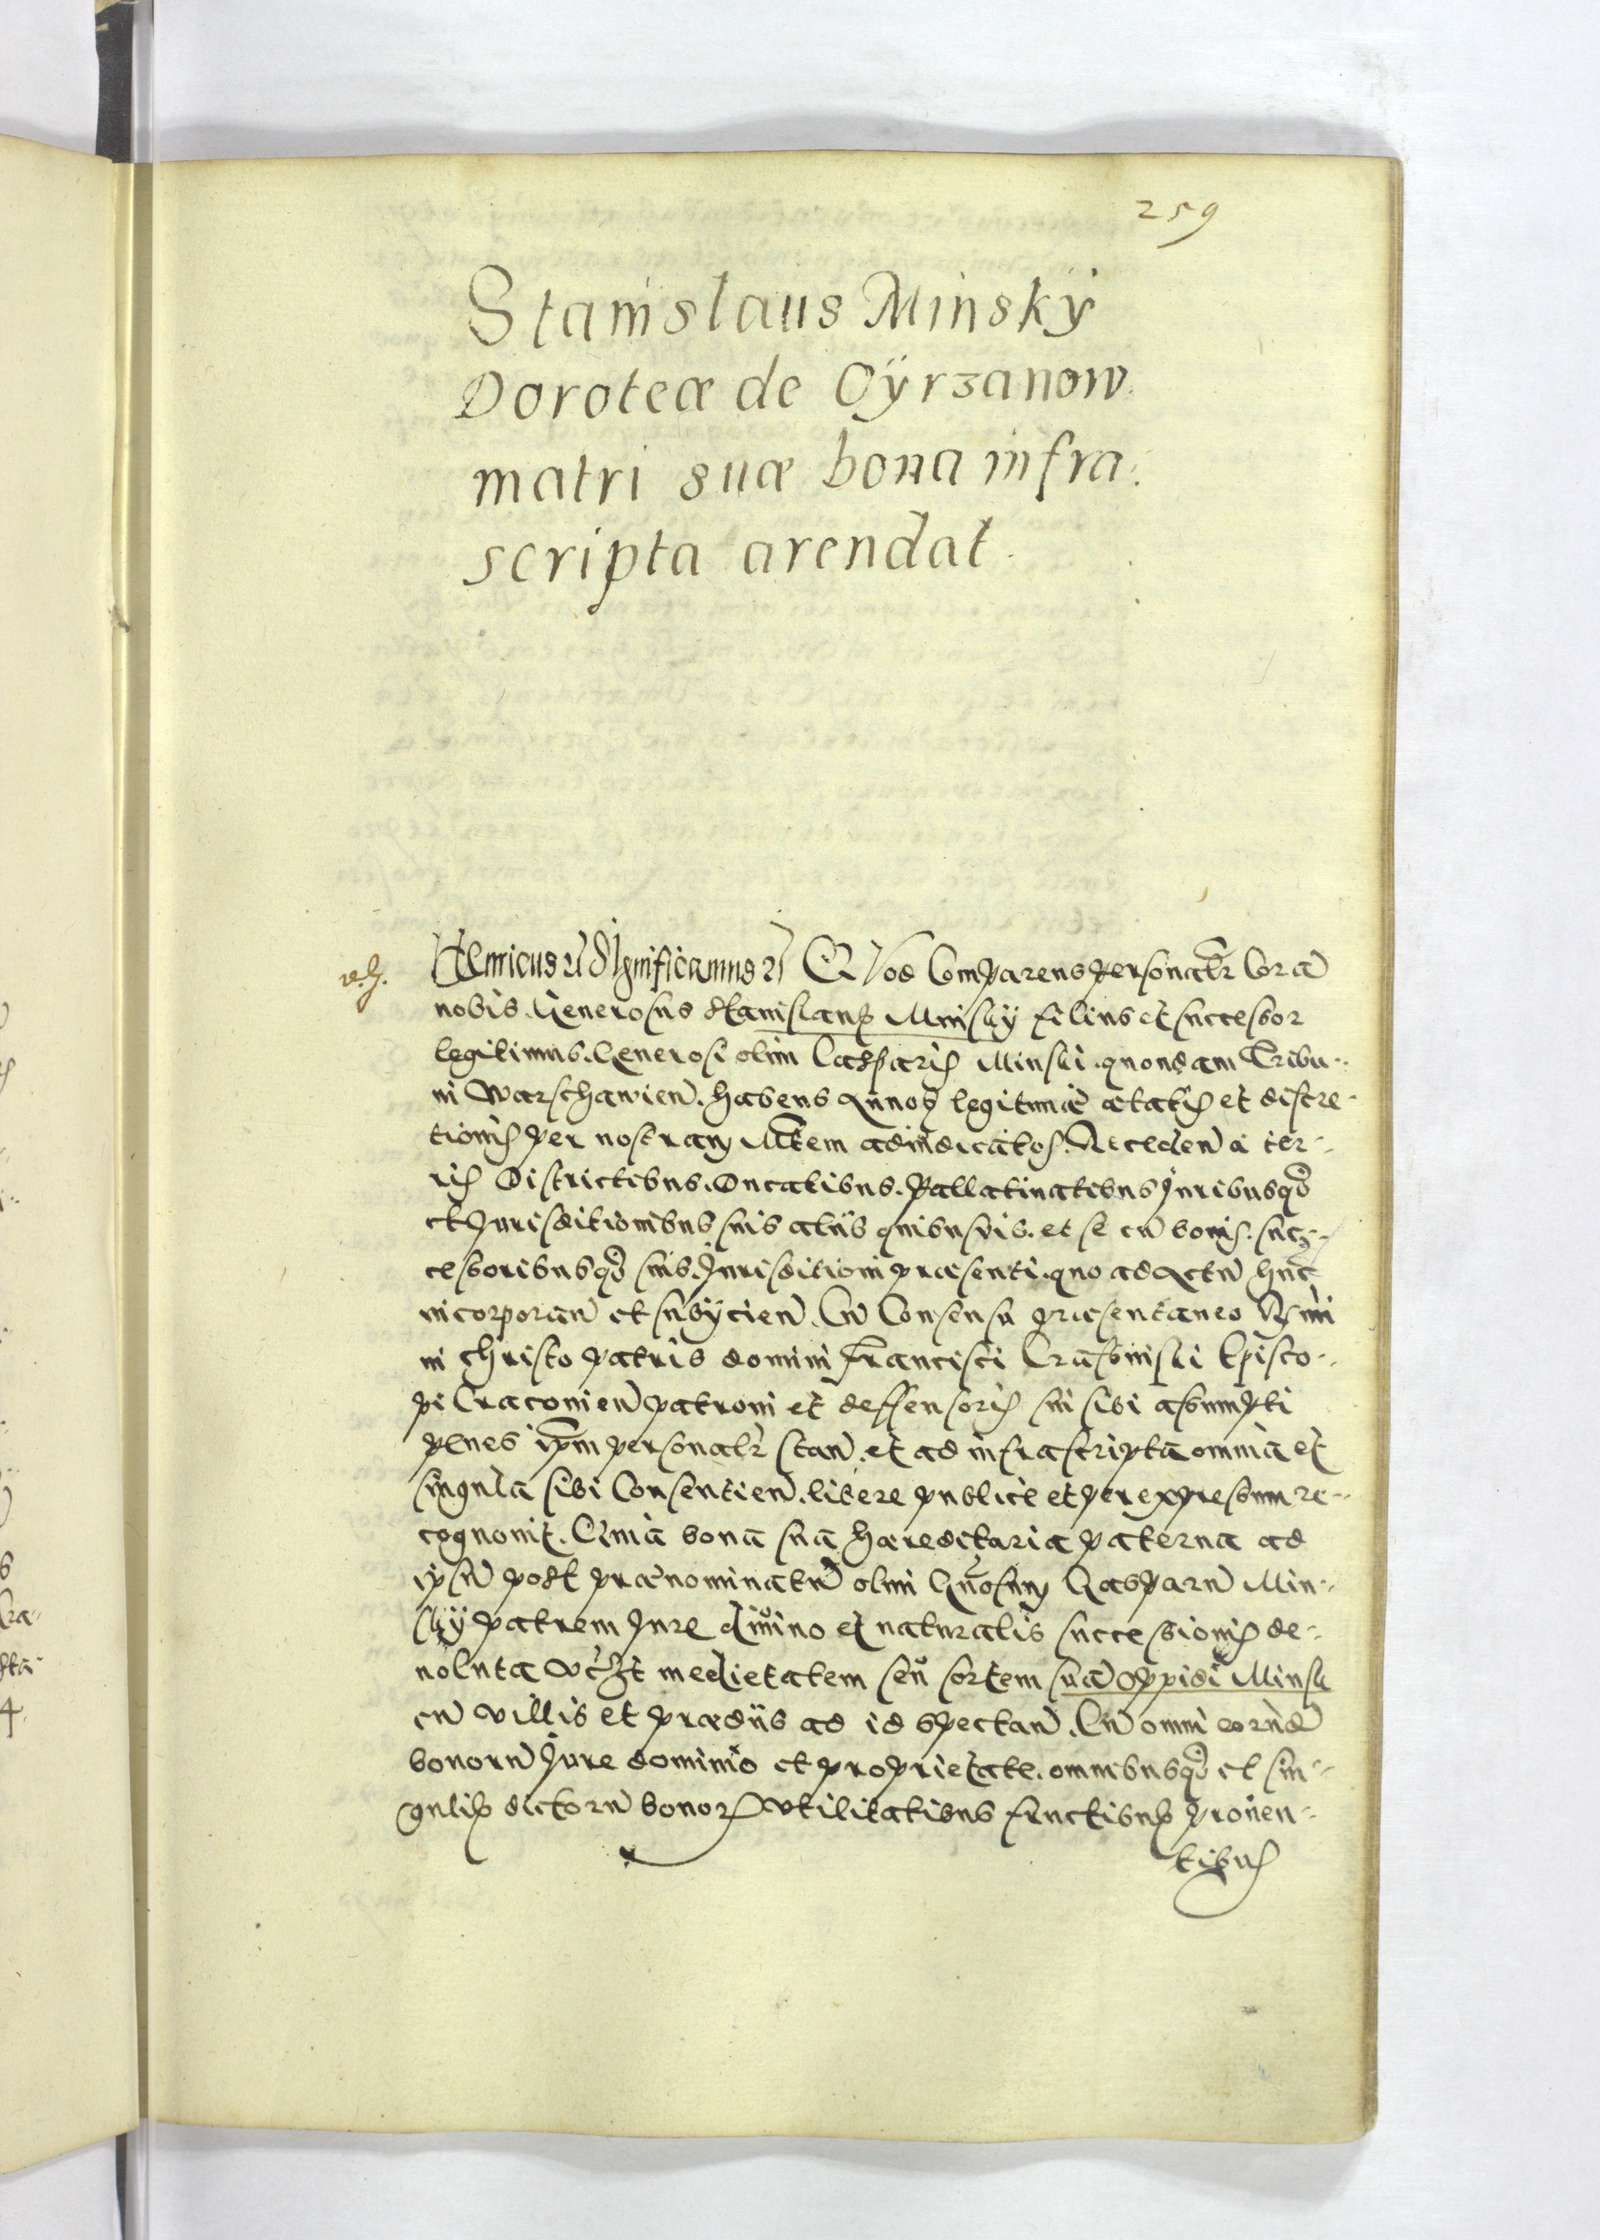 259
Stanislaus Minskÿ
Doroteæ de Oÿrzanow
matri suæ bona infra:
scripta arendat.
Henricus Significamus Quod Comparens personalr̃ Corã
nobis Generosus Stanislaus Minskÿ filius et successor
legitimus. Generosi olim Casparis Minski. quondam Tribu-
ni Warschawien̄. habens Annos legitimæ ætatis et discre-
tionis per nostram Mtem adiudicatos. Recedeñ a ter-
ris Districtibus. Ducatibus. Pallatinatibus Juribusq̃
et Jurisditionibus suis aliis quibusvis. et se cū bonis. suc-
cessoribusq̃ suis. Jurisditioni præsenti. quo ad Actū hūc
incorporan̄ et subÿcien̄. Cū Consensu præsentaneo Rsmi
in Christo patris domini Francisci Crasinski Episco-
pi Cracouien̄ patroni et deffensoris sui sibi assumpti
penes ipm̄ personalr̃ stan̄. et ad infrascripta omnia et
singula sibi Consentien̄. libere publice et per expressum re-
cognouit. Quia bona sua hæreditaria paterna ad
ipsū post prænominatū olim Gnosum Casparū Min-
skÿ patrem Jure diuino et naturalis successionis de-
uoluta medietatem seu sortem suā oppidi Minsk
cū villis et prædiis ad id spectan̄. Cū omni eorūdē
bonorū Jure dominio et proprietate. omnibusq̃ et sin-
gulis dictorū bonor̄ vtilitatibus fructibus prouen-
tibus